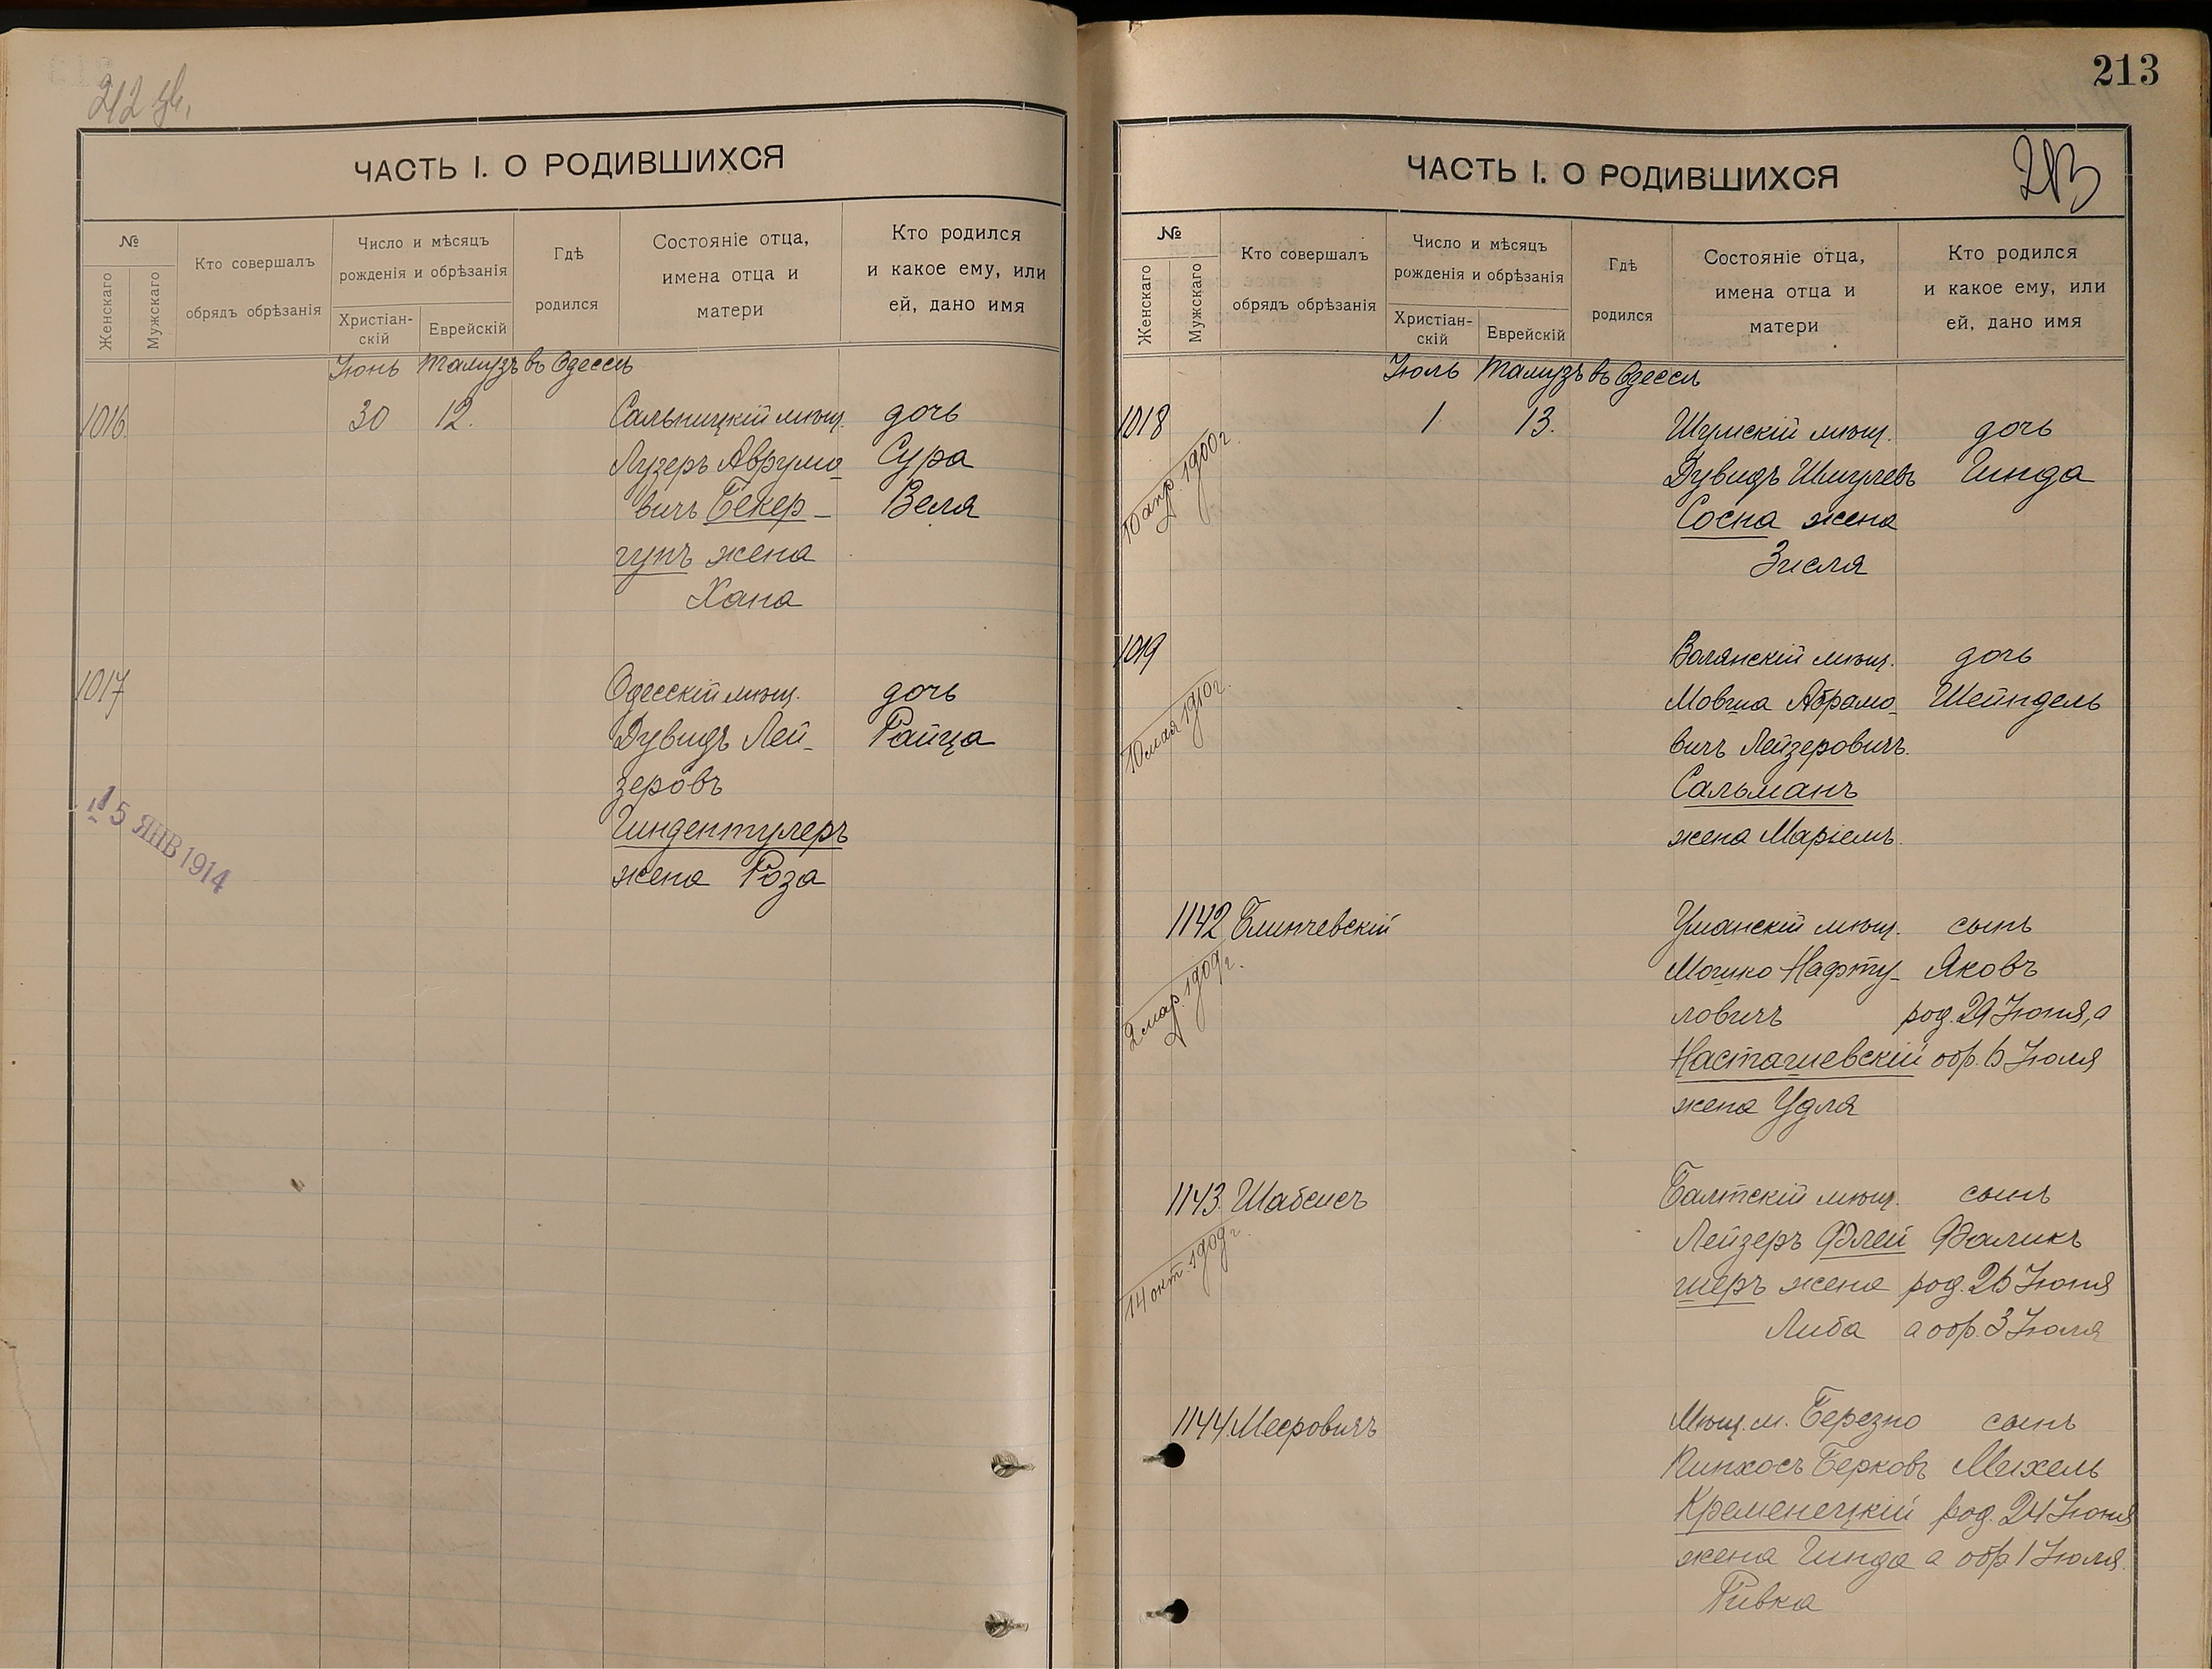 212 об.
ЧАСТЬ I. О РОДИВШИХСЯ
№
Женскаго
Мужскаго
Кто совершалъ
обрядъ обрѣзанія
Число и мѣсяцъ
рожденія и обрѣзанія
Христіан-
скій
Еврейскій
Гдѣ
родился
Состояніе отца,
имена отца и
матери
Кто родился
и какое ему, или
ей, дано имя
Іюнь Тамузъ въ Одессѣ
1016. 30 12. Сальницкій мѣщ. дочь
Лузеръ Аврумо- Сура
вичъ Бекер- Веля
гунъ жена
Хана
1017 Одесскій мѣщ. дочь
Дувидъ Лей- Райца
зеровъ
Гиндентулеръ
жена Роза
15 ЯНВ 1914
213
ЧАСТЬ I. О РОДИВШИХСЯ
213
№
Женскаго
Мужскаго
Кто совершалъ
обрядъ обрѣзанія
Число и мѣсяцъ
рожденія и обрѣзанія
Христіан-
скій
Еврейскій
Гдѣ
родился
Состояніе отца,
имена отца и
матери
Кто родился
и какое ему, или
ей, дано имя
Іюль Тамузъ въ Одессѣ
1018 1 13. Шумскій мѣщ. дочь
Дувидъ Шмулевъ Гинда
Сосна жена
Зисля
10 апр. 1900 г.
1019 Волянскій мѣщ. дочь
Мовша Абрамо- Шейндель
вичъ Лейзеровичъ.
Сальманъ
жена Маріемъ.
10 мая 1910 г.
1142 Блинчевскій Уманскій мѣщ. сынъ
Мошко Нафту- Яковъ
ловичъ род. 29 Іюня, а
Насташевскій обр. 6 Іюля
жена Удля
2 мар. 1909 г.
1143. Шабсисъ Балтскій мѣщ. сынъ
Лейзеръ Флей Фаликъ
шеръ жена род. 26 Іюня
Либа а обр. 3 Іюля
14 окт. 1909 г.
1144. Мееровичъ Мѣщ. м. Березно сынъ
Пинхосъ Берковъ Михель
Кременецкій род. 24 Іюня
жена Гинда а обр. 1 Іюля.
Ривка